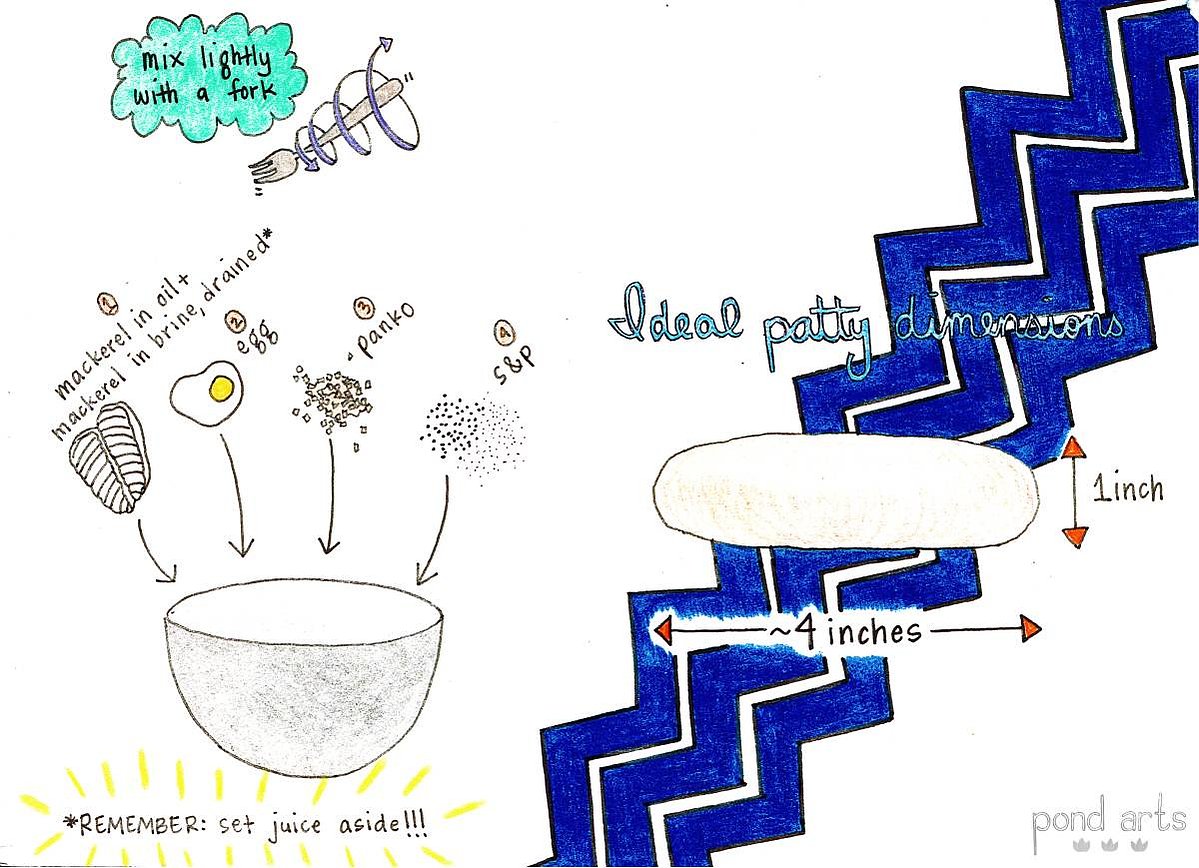 mix lightly
with a fork
1
mackerel in oil +
mackerel in brine, drained*
2
egg
3
panko
4
s&p
*REMEMBER: set juice aside!!!
Ideal patty dimensions
1 inch
~4 inches
pond arts